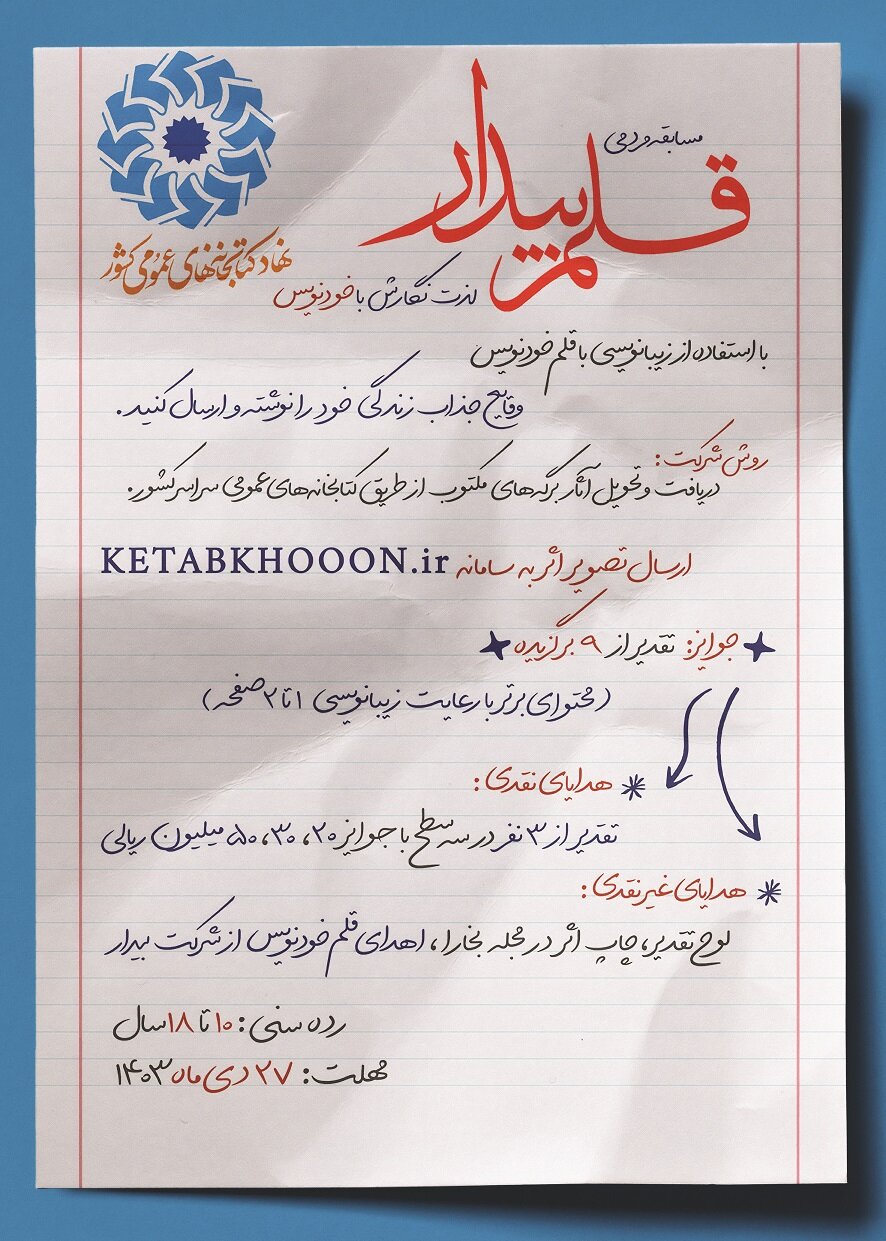 مسابقه مردمی
قلم بیدار
نهاد کتابخانه‌های عمومی کشور
لذت نگارش با خودنویس
با استفاده از زیبانویسی با قلم خودنویس
وقایع جذاب زندگی خود را نوشته و ارسال کنید.
روش شرکت:
دریافت و تحویل آثار برگه‌های مکتوب از طریق کتابخانه‌های عمومی سراسر کشور.
ارسال تصویر اثر به سامانه KETABKHOOON.ir
جوایز: تقدیر از ۹ برگزیده
(محتوای برتر با رعایت زیبانویسی ۱ تا ۲ صفحه)
هدایای نقدی:
تقدیر از ۳ نفر در سه سطح با جوایز ۲۰، ۳۰، ۵۰ میلیون ریالی
هدایای غیر نقدی:
لوح تقدیر، چاپ اثر در مجله بخارا، اهدای قلم خودنویس از شرکت بیدار
رده سنی: ۱۰ تا ۱۸ سال
مهلت: ۲۷ دی ماه ۱۴۰۳